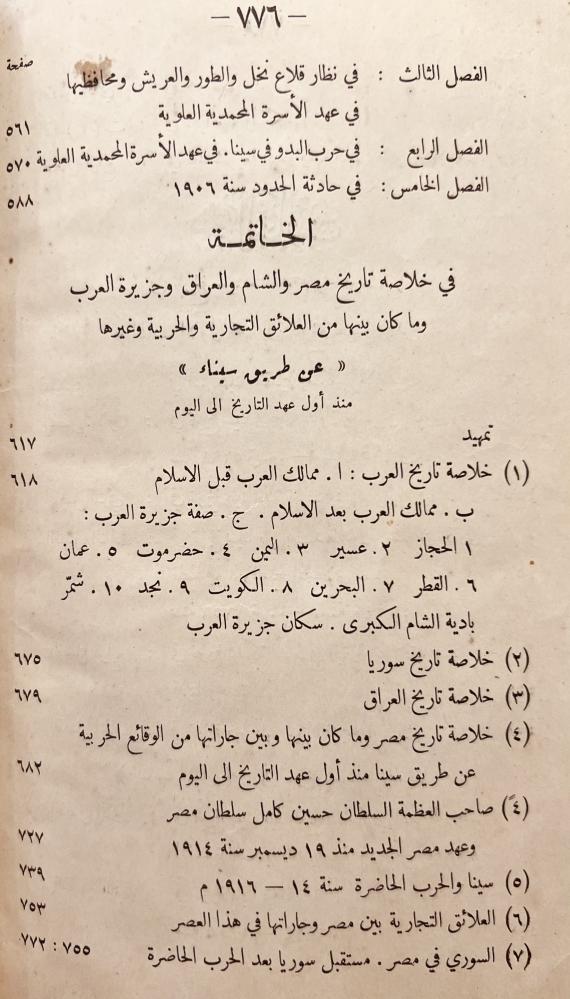 — ٧٧٦ —
صفحة
الفصل الثالث : في نظار قلاع نخل والطور والعريش ومحافظيها
في عهد الأسرة المحمدية العلوية ٥٦١
الفصل الرابع : في حرب البدو في سينا. في عهد الأسرة المحمدية العلوية ٥٧٠
الفصل الخامس : في حادثة الحدود سنة ١٩٠٦ ٥٨٨
الخـاتمـة
في خلاصة تاريخ مصر والشام والعراق وجزيرة العرب
وما كان بينها من العلائق التجارية والحربية وغيرها
« عن طريق سيناء »
منذ أول عهد التاريخ الى اليوم
تمهيد ٦١٧
(١) خلاصة تاريخ العرب : ا . ممالك العرب قبل الاسلام ٦١٨
ب . ممالك العرب بعد الاسلام . ج . صفة جزيرة العرب :
١ الحجاز ٢. عسير ٣. اليمن ٤. حضرموت ٥. عمان
٦. القطر ٧. البحرين ٨. الكويت ٩. نجد ١٠. شمّر
بادية الشام الكبرى . سكان جزيرة العرب
(٢) خلاصة تاريخ سوريا ٦٧٥
(٣) خلاصة تاريخ العراق ٦٧٩
(٤) خلاصة تاريخ مصر وما كان بينها وبين جاراتها من الوقائع الحربية
عن طريق سينا منذ أول عهد التاريخ الى اليوم ٦٨٢
(٤) صاحب العظمة السلطان حسين كامل سلطان مصر
وعهد مصر الجديد منذ ١٩ ديسمبر سنة ١٩١٤ ٧٢٧
(٥) سينا والحرب الحاضرة سنة ١٤ — ١٩١٦ م ٧٣٩
(٦) العلائق التجارية بين مصر وجاراتها في هذا العصر ٧٥٣
(٧) السوري في مصر . مستقبل سوريا بعد الحرب الحاضرة ٧٥٥ : ٧٧٢